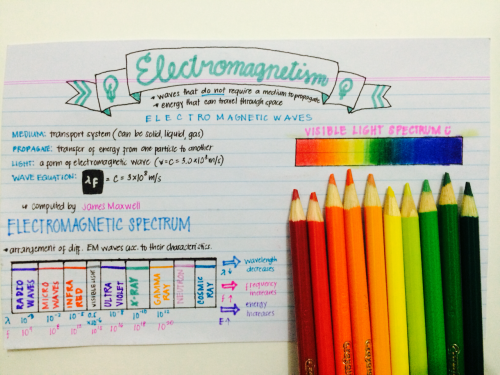 Electromagnetism
• waves that do not require a medium to propagate
• energy that can travel through space
ELECTROMAGNETIC WAVES
MEDIUM: transport system (can be solid, liquid, gas)
PROPAGATE: transfer of energy from one particle to another
LIGHT: a form of electromagnetic wave (v = C = 3.0 x 10⁸ m/s)
WAVE EQUATION: λF = C = 3 x 10⁸ m/s
↳ computed by James Maxwell
VISIBLE LIGHT SPECTRUM
ELECTROMAGNETIC SPECTRUM
• arrangement of diff. EM waves acc. to their characteristics.
RADIO WAVES
MICRO WAVES
INFRA RED
VISIBLE LIGHT
ULTRA VIOLET
X-RAY
GAMMA RAY
COSMIC RAY
λ↓ wavelength decreases
f↑ frequency increases
E↑ energy increases
λ
f